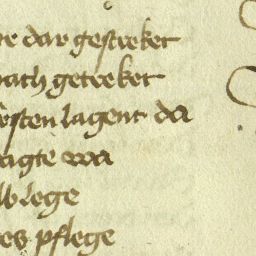 dar gestrecket
nach getrecket
lagent da
sagte wa
lege
es pflege